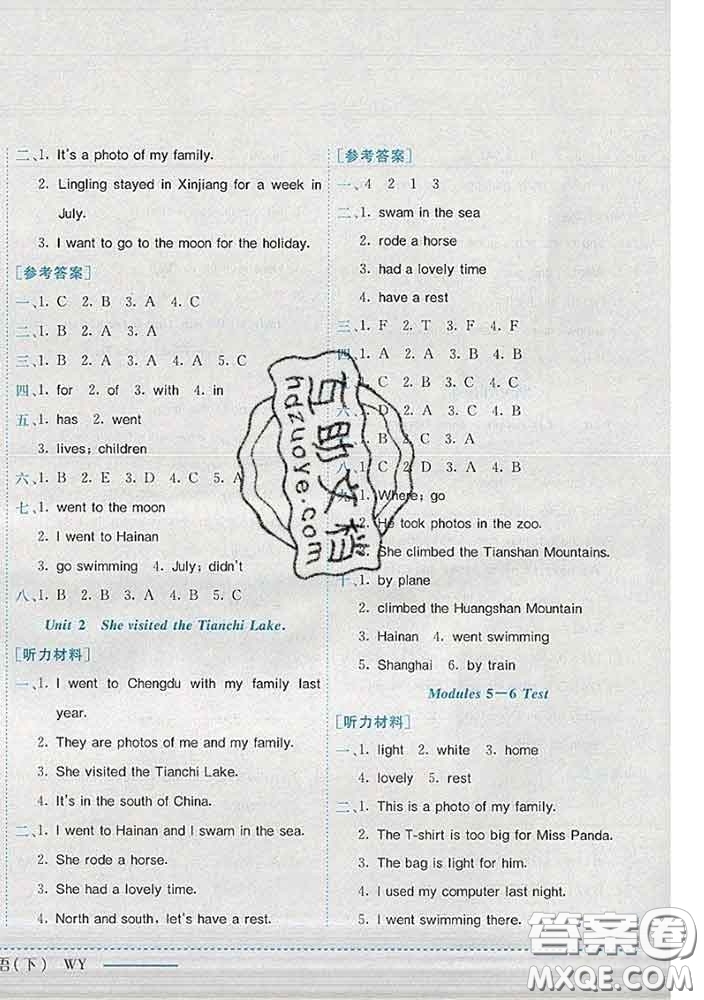 二、1. It's a photo of my family.
2. Lingling stayed in Xinjiang for a week in
July.
3. I want to go to the moon for the holiday.
[参考答案]
一、1. C 2. B 3. A 4. C
二、1. B 2. A 3. A
三、1. B 2. A 3. A 4. A 5. C
四、1. for 2. of 3. with 4. in
五、1. has 2. went
3. lives; children
六、1. B 2. E 3. D 4. C 5. A
七、1. went to the moon
2. I went to Hainan
3. go swimming 4. July; didn't
八、1. B 2. B 3. A 4. C 5. B
Unit 2 She visited the Tianchi Lake.
[听力材料]
一、1. I went to Chengdu with my family last
year.
2. They are photos of me and my family.
3. She visited the Tianchi Lake.
4. It's in the south of China.
二、1. I went to Hainan and I swam in the sea.
2. She rode a horse.
3. She had a lovely time.
4. North and south, let's have a rest.
[参考答案]
一、4 2 1 3
二、1. swam in the sea
2. rode a horse
3. had a lovely time
4. have a rest
三、1. F 2. T 3. F 4. F
四、1. A 2. A 3. B 4. A 5. C
1. C 2. B 3. C 4. B
六、1. D 2. A 3. C 4. B
1. B 2. C 3. A
八、1. C 2. D 3. B 4. E 5. A
九、1. Where; go
2. He took photos in the zoo.
3. She climbed the Tianshan Mountains.
十、1. by plane
2. climbed the Huangshan Mountain
3. Hainan 4. went swimming
5. Shanghai 6. by train
Modules 5—6 Test
[听力材料]
一、1. light 2. white 3. home
4. lovely 5. rest
二、1. This is a photo of my family.
2. The T-shirt is too big for Miss Panda.
3. The bag is light for him.
4. I used my computer last night.
5. I went swimming there.
语(下) WY
互助文档
hdzuoye.com
答案圈
MXQE.COM